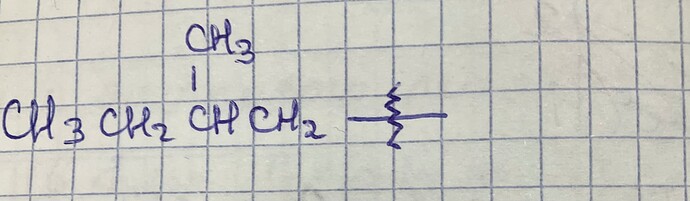 CH3
CH3 CH2 CH CH2